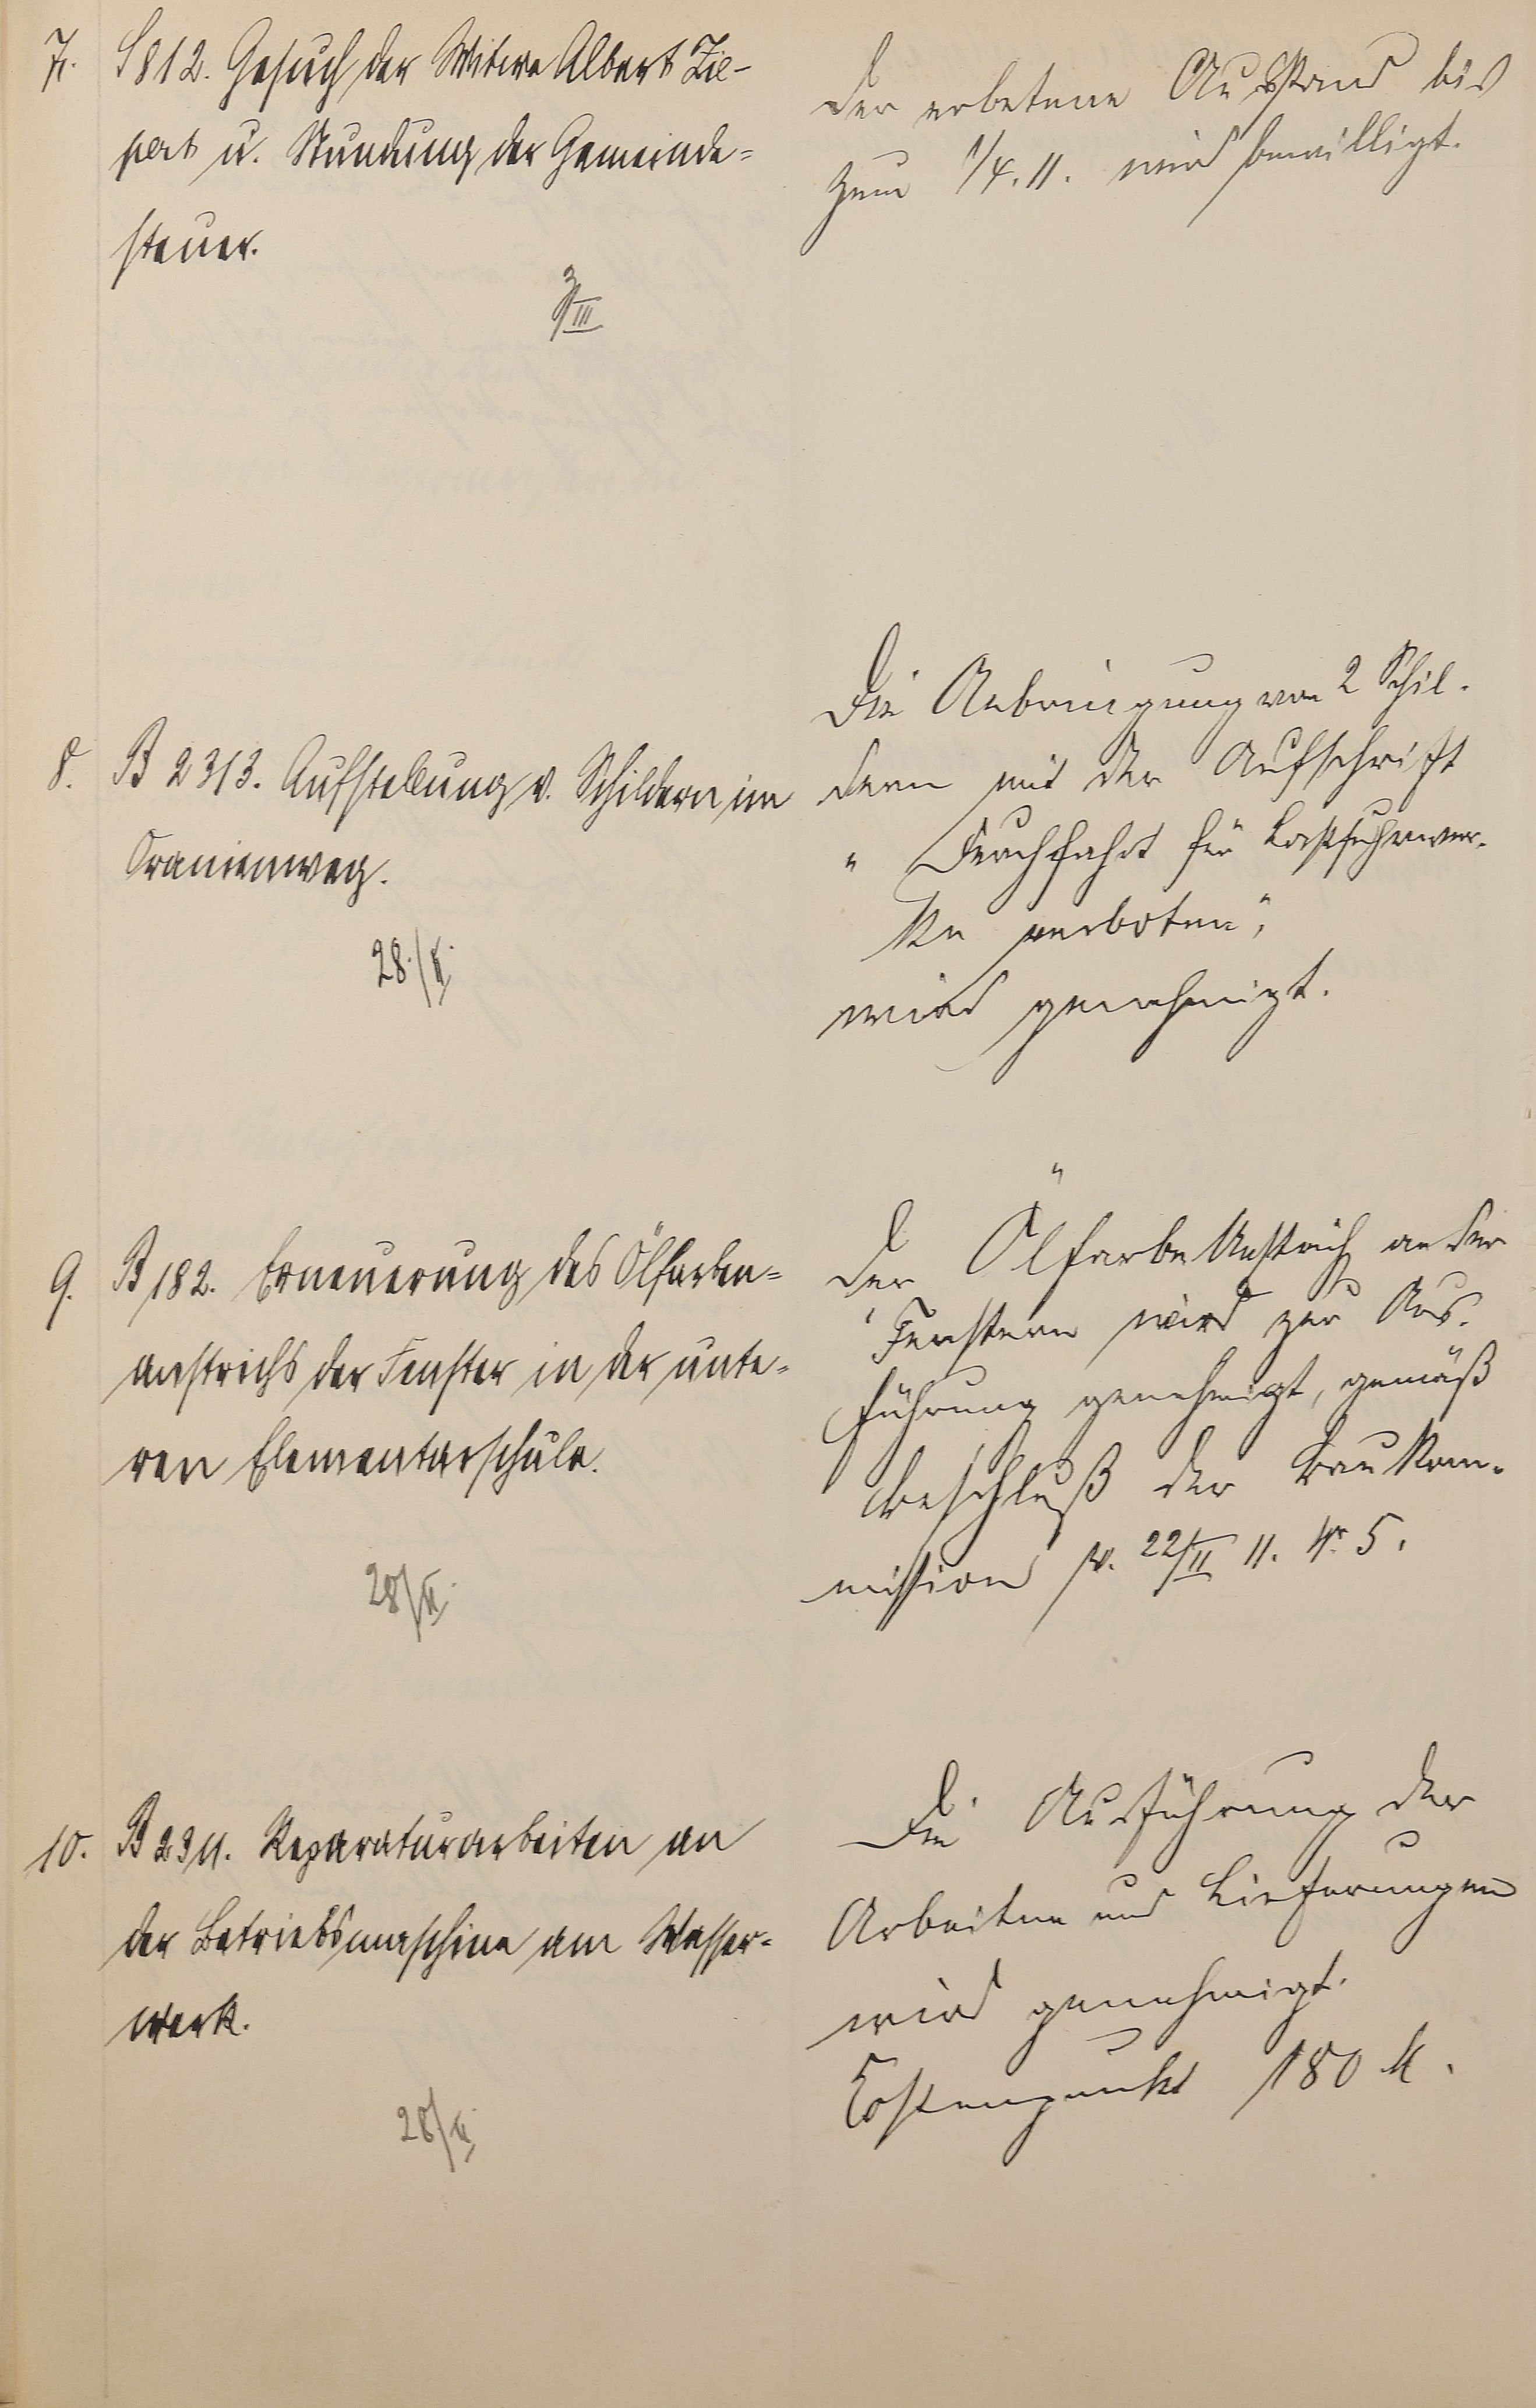 7. S 812. Gesuch der Witwe Albert Zie-
pert u. Stundung der Gemeinde=
steuer.
3/III
Der erbetene Ausstand bis
zum 1/4. 11. wird bewilligt.
8. B 2313. Aufstellung v. Schildern im
Oranienweg.
28./II.
Die Anbringung von 2 Schil-
dern mit der Aufschrift
" Durchfahrt für Lastfuhrwer-
ke verboten",
wird genehmigt.
9. B 182. Erneuerung des Ölfarben=
anstrichs der Fenster in der unte=
ren Elementarschule.
28/II.
Der Ölfarbe Anstrich an den
Fenstern wird zur Aus-
führung genehmigt, gemäß
Beschluß der Baukom-
mission v. 22/II 11. Nr. 5.
10. B 2311. Reparaturarbeiten an
der Betriebsmaschine am Wasser=
werk.
28/II.
Die Ausführung der
Arbeiten und Lieferungen
wird genehmigt.
Kostenpunkt 180 M.